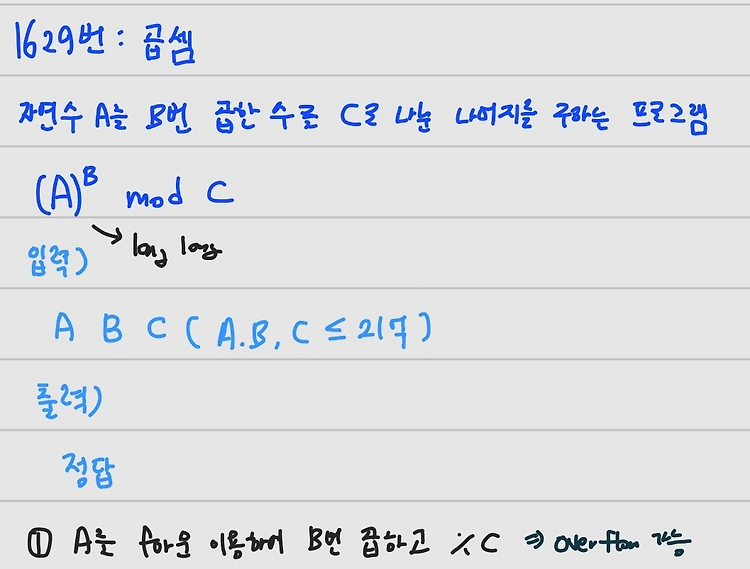 1629번 : 곱셈
자연수 A를 B번 곱한 수를 C로 나눈 나머지를 구하는 프로그램
(A)^B mod C
→ long long
입력)
A B C ( A.B, C ≤ 21억 )
출력)
정답
① A를 for문 이용하여 B번 곱하고 %C ⇒ overflow 가능